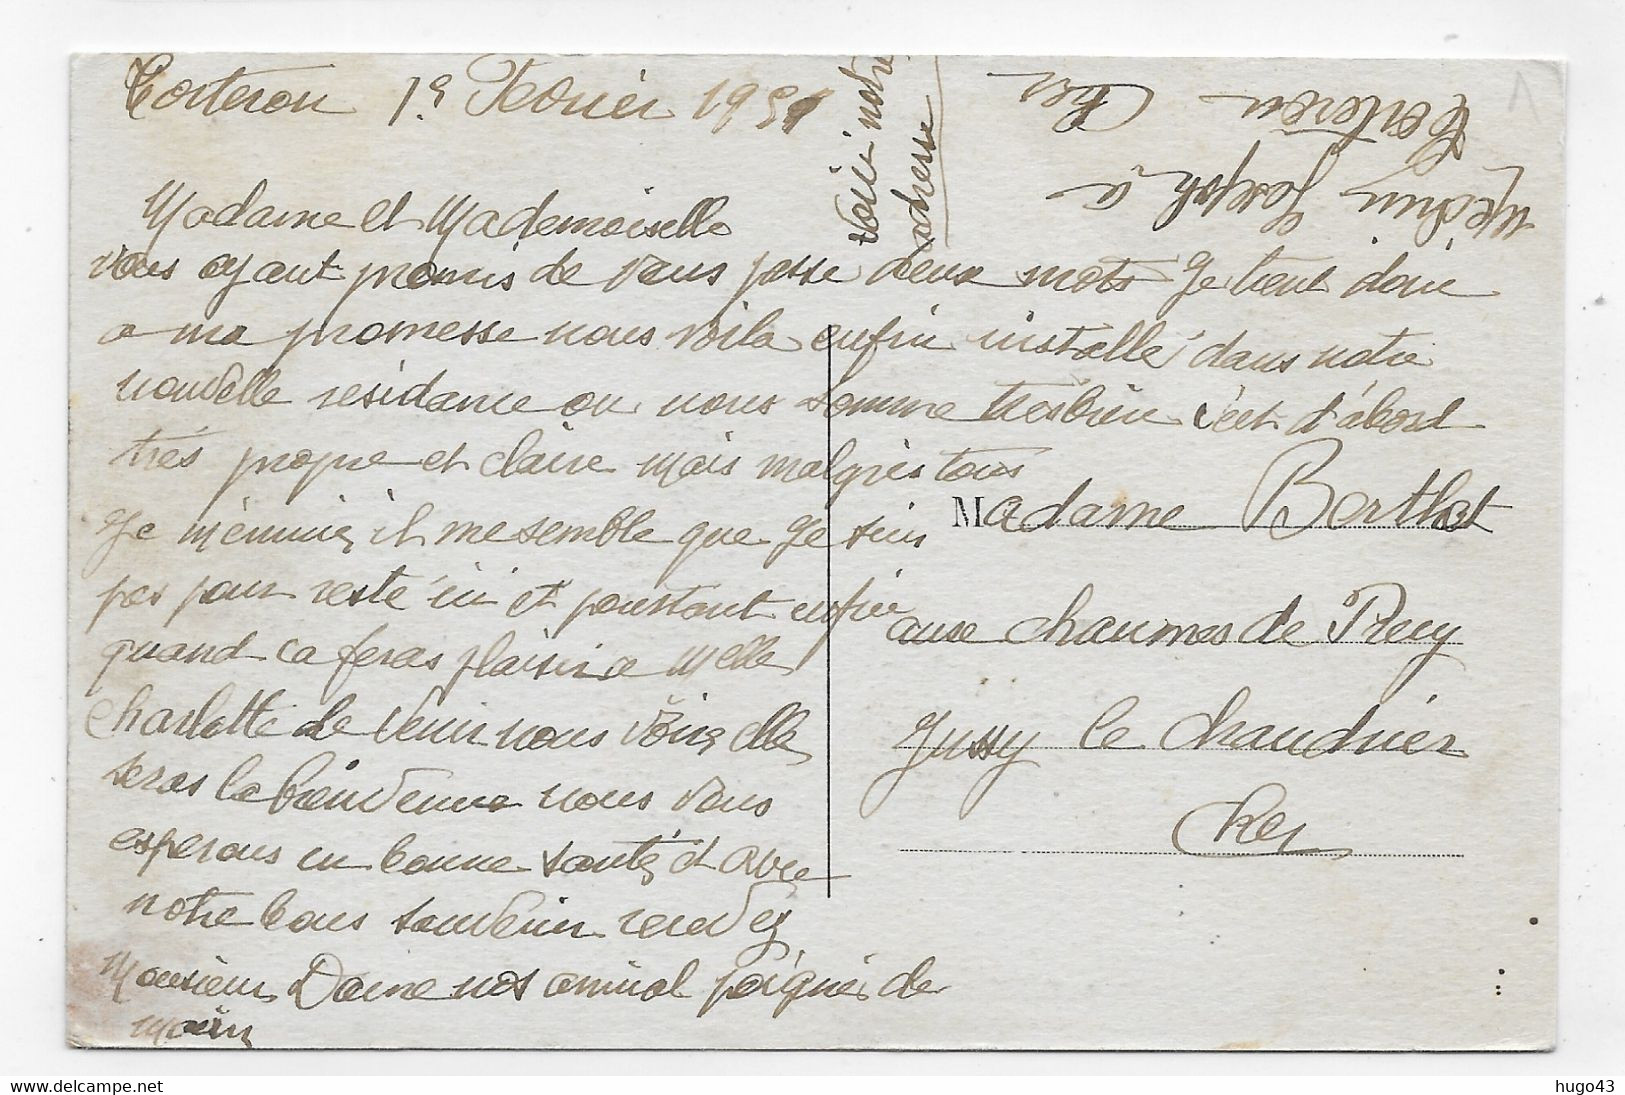 Torteron 1e. Fevrier 1931
Voici notre
adresse
Medun Joseph a
Torteron Cher
Madame et Mademoiselle
Vous ayant promis de vous posse deux mots Je tient donc
a ma promesse nous voila enfin installé dans notre
nouvelle residance ou nous somme tresbien c'est d'abord
très propre et claire mais malgrès tous
Je m'ennuie, il me semble que Je suis
pas pour resté ici et pourtant enfin
quand ca feras plaisir a Melle
Charlotte de venir nous Voir, elle
seras la bienvenue nous vous
esperons en bonne santé, et avec
notre bons souvenir recevez
Monsieur Dame nos amical poigner de
main
Madame Berthot
ause chaumes de Precy
Jussy le chaudrier
Cher
hugo43